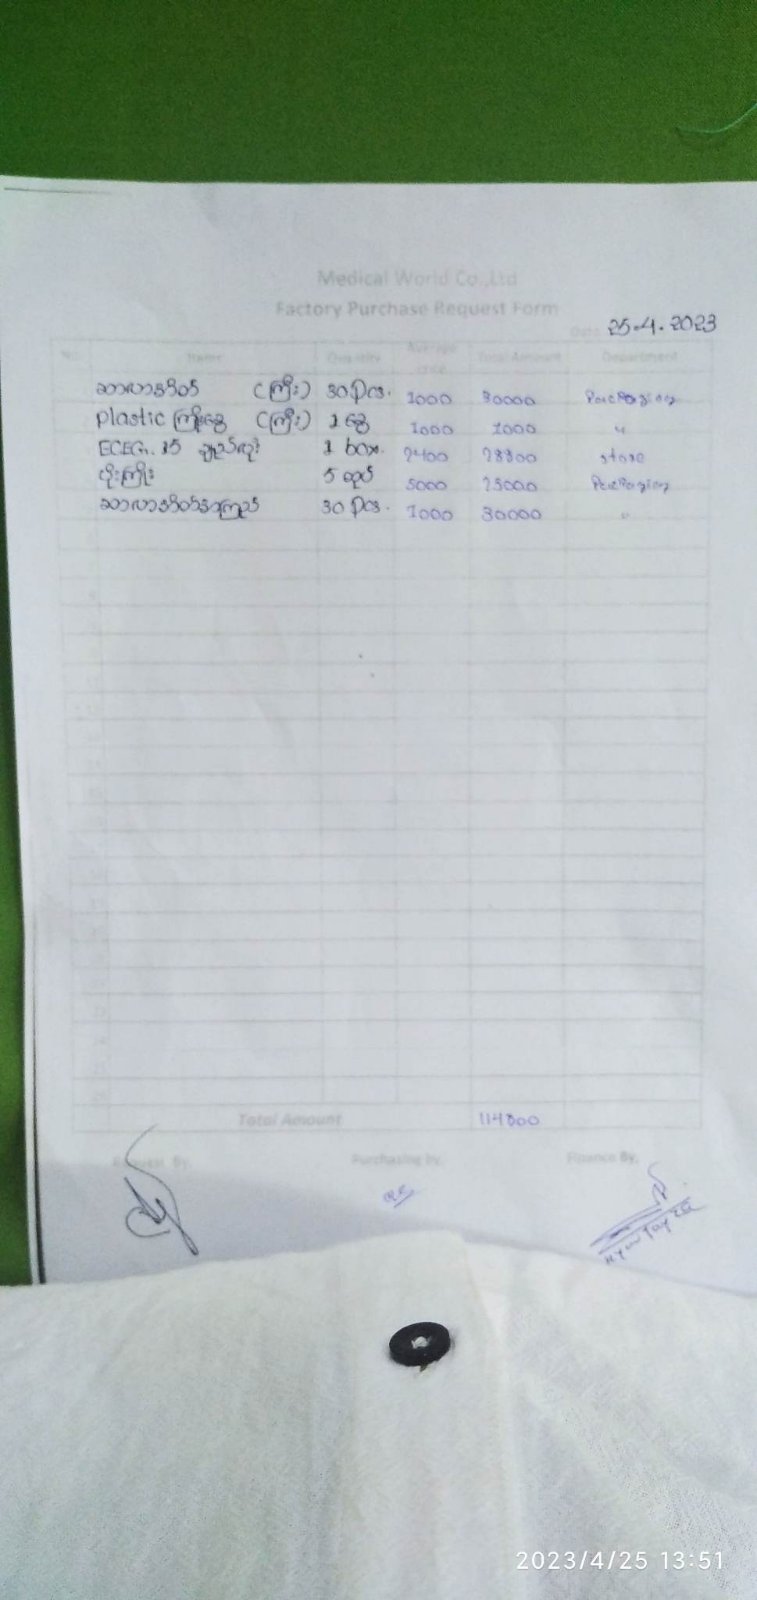 Medical World Co.,Ltd
Factory Purchase Request Form
Date 25.4.2023
No Name Quantity Average price Total Amount Department
ဆာလာအိတ် (ကြီး) 30 pcs. 1000 30000 Packaging
plastic ကြိုးခွေ (ကြီး) 1 ခွေ 1000 1000 "
1 box. 2400 28800 store
ပိုးကြိုး 5 ထုပ် 5000 25000 Packaging
ဆာလာအိတ်အကြည် 30 pcs. 1000 30000 "
Total Amount 114800
Request By Purchasing by, Finance By,
2023/4/25 13:51